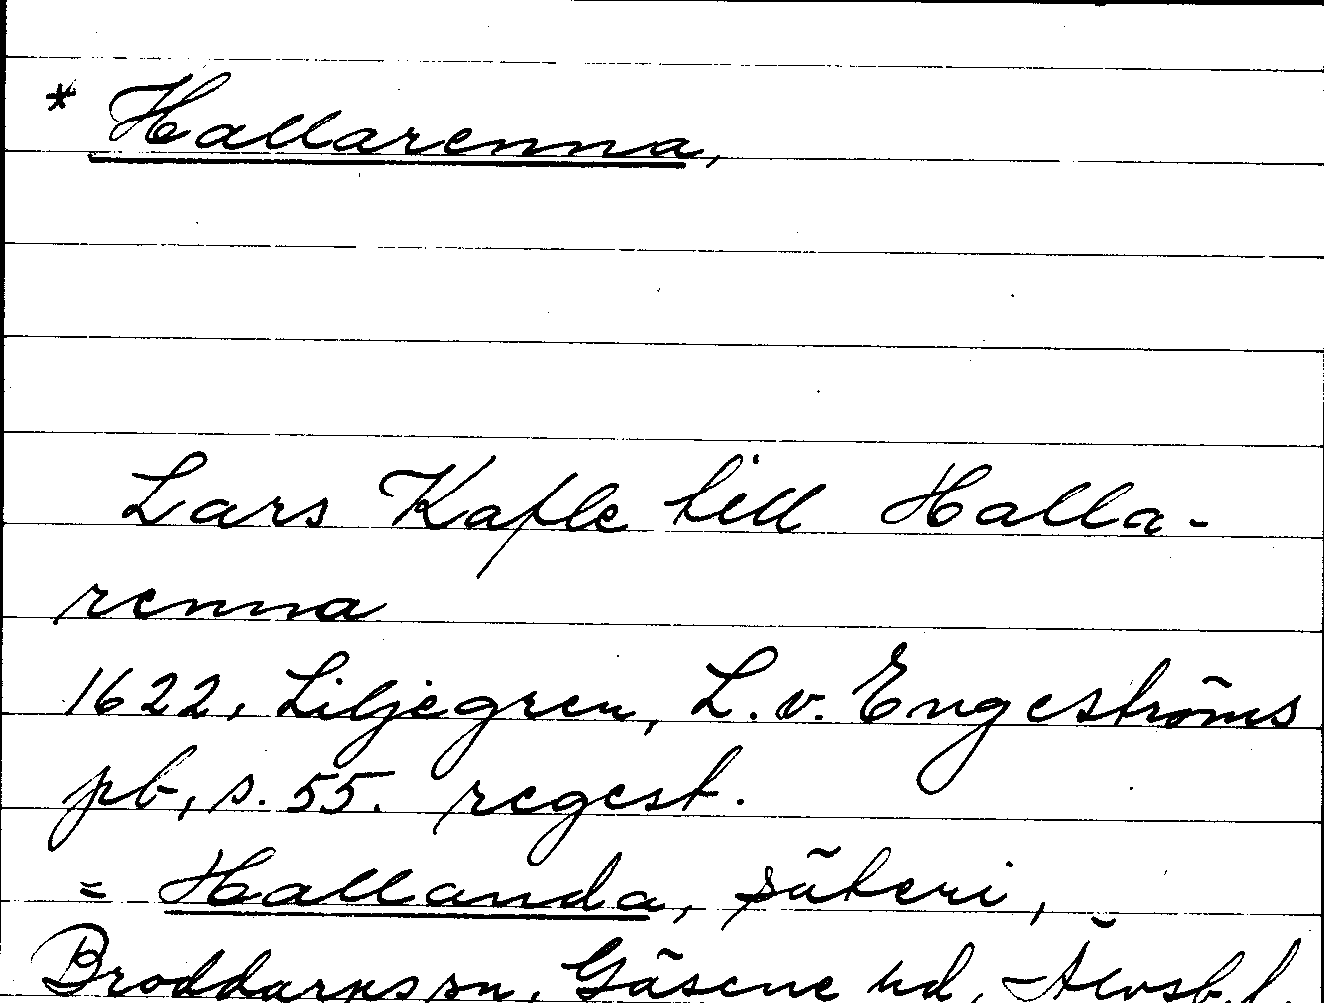 * Hallarenna,
Lars Kafle till Halla-
renna
1622, Liljegren, L. v. Engeströms
pb, s. 55. regest.
= Hallanda, säteri,
Broddarps sn, Gäsene hd, Älvsb. l.